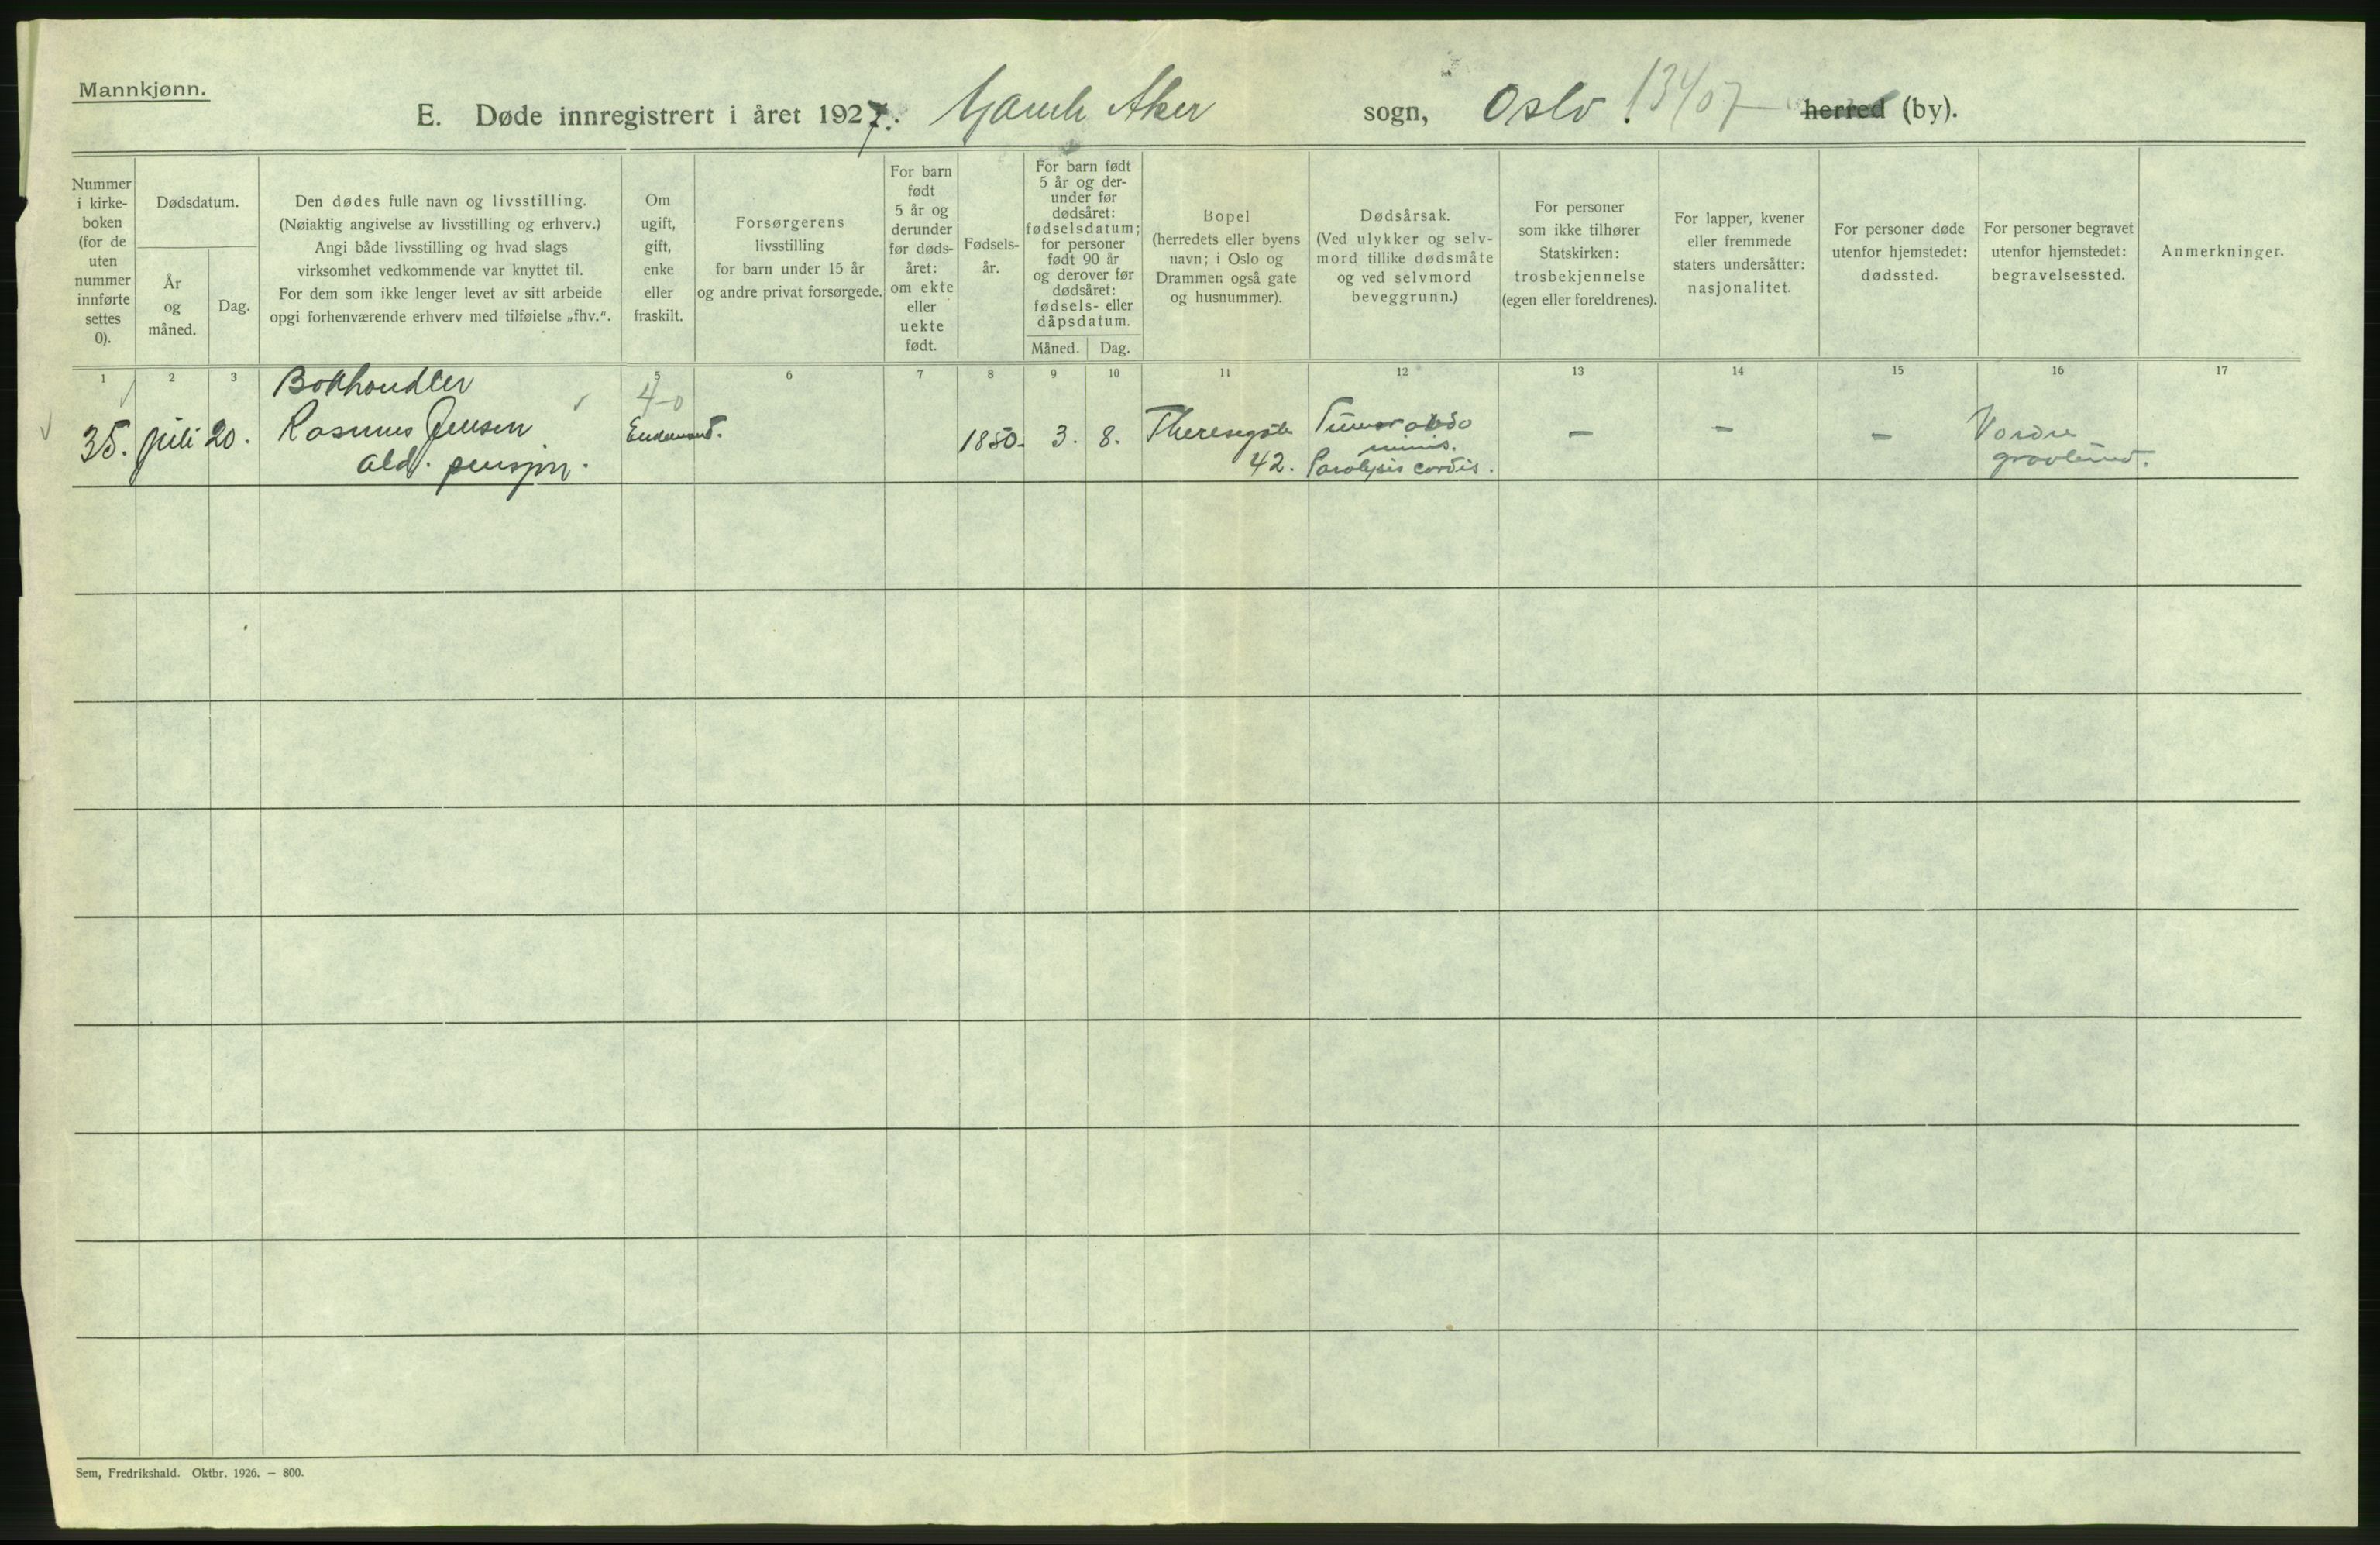 Mannkjønn.
E. Døde innregistrert i året 1927. Gamle Aker sogn, Oslo. 13407 herred (by).
Nummer
i kirke-
boken
(for de
uten
nummer
innførte
settes
0).
Dødsdatum.
År
og
måned.
Dag.
Den dødes fulle navn og livsstilling.
(Nøiaktig angivelse av livsstilling og erhverv.)
Angi både livsstilling og hvad slags
virksomhet vedkommende var knyttet til.
For dem som ikke lenger levet av sitt arbeide
opgi forhenværende erhverv med tilføielse „fhv.“.
Om
ugift,
gift,
enke
eller
fraskilt.
Forsørgerens
livsstilling
for barn under 15 år
og andre privat forsørgede.
For barn
født
5 år og
derunder
før døds-
året:
om ekte
eller
uekte
født.
Fødsels-
år.
For barn født
5 år og der-
under før
dødsåret:
fødselsdatum;
for personer
født 90 år
og derover før
dødsåret:
fødsels- eller
dåpsdatum.
Måned. Dag.
Bopel
(herredets eller byens
navn; i Oslo og
Drammen også gate
og husnummer).
Dødsårsak.
(Ved ulykker og selv-
mord tillike dødsmåte
og ved selvmord
beveggrunn.)
For personer
som ikke tilhører
Statskirken:
trosbekjennelse
(egen eller foreldrenes).
For lapper, kvener
eller fremmede
staters undersåtter:
nasjonalitet.
For personer døde
utenfor hjemstedet:
dødssted.
For personer begravet
utenfor hjemstedet:
begravelsessted.
Anmerkninger.
1 2 3 5 6 7 8 9 10 11 12 13 14 15 16 17
35. juli 20.
Bokhandler
Rasmus Jensen
ald. pensjon.
4-0
Enkemand.
1850. 3. 8.
Theresegate
42.
Tumor abdo
minis.
Paralysis cordis.
– – –
Vordre
gravlund.
Sem, Fredrikshald. Oktbr. 1926. – 800.